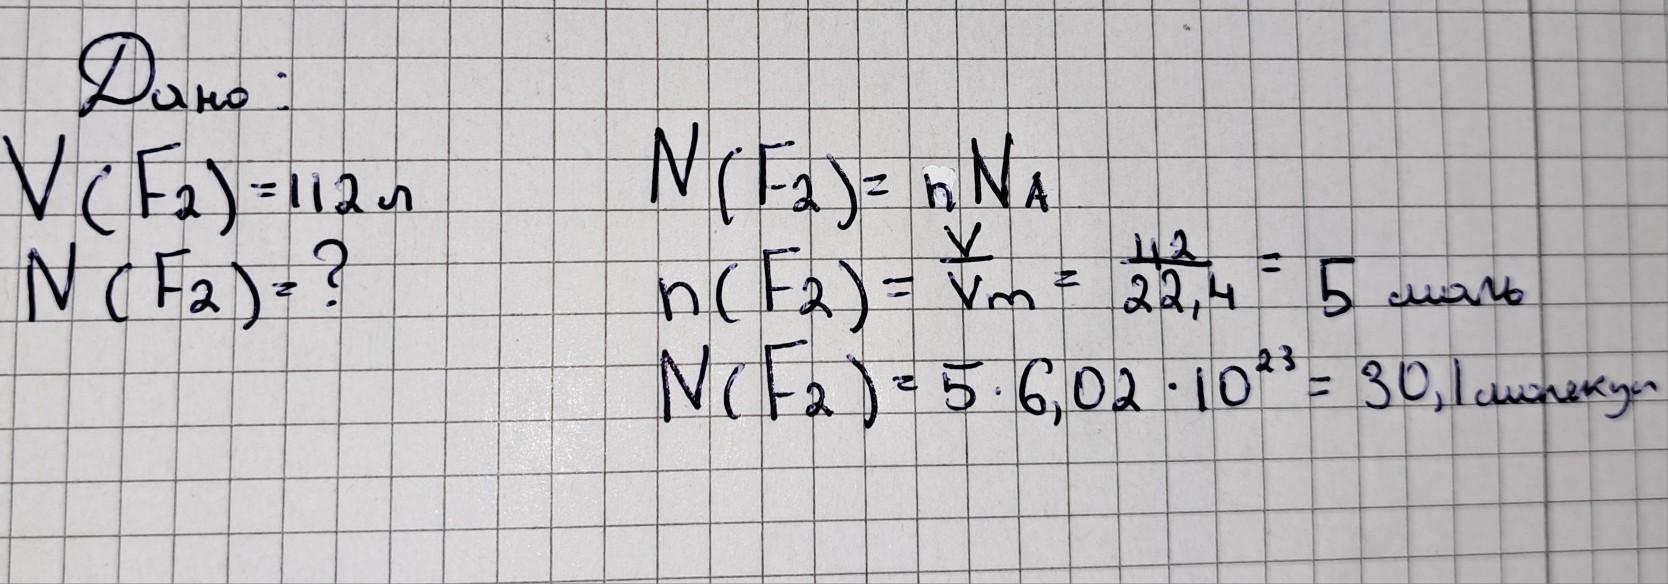 Дано:
V(F₂)=112л
N(F₂)=?
N(F₂)= nNА
n(F₂)= V/Vm = 112/22,4 = 5 моль
N(F₂)=5·6,02·10²³= 30,1молекул